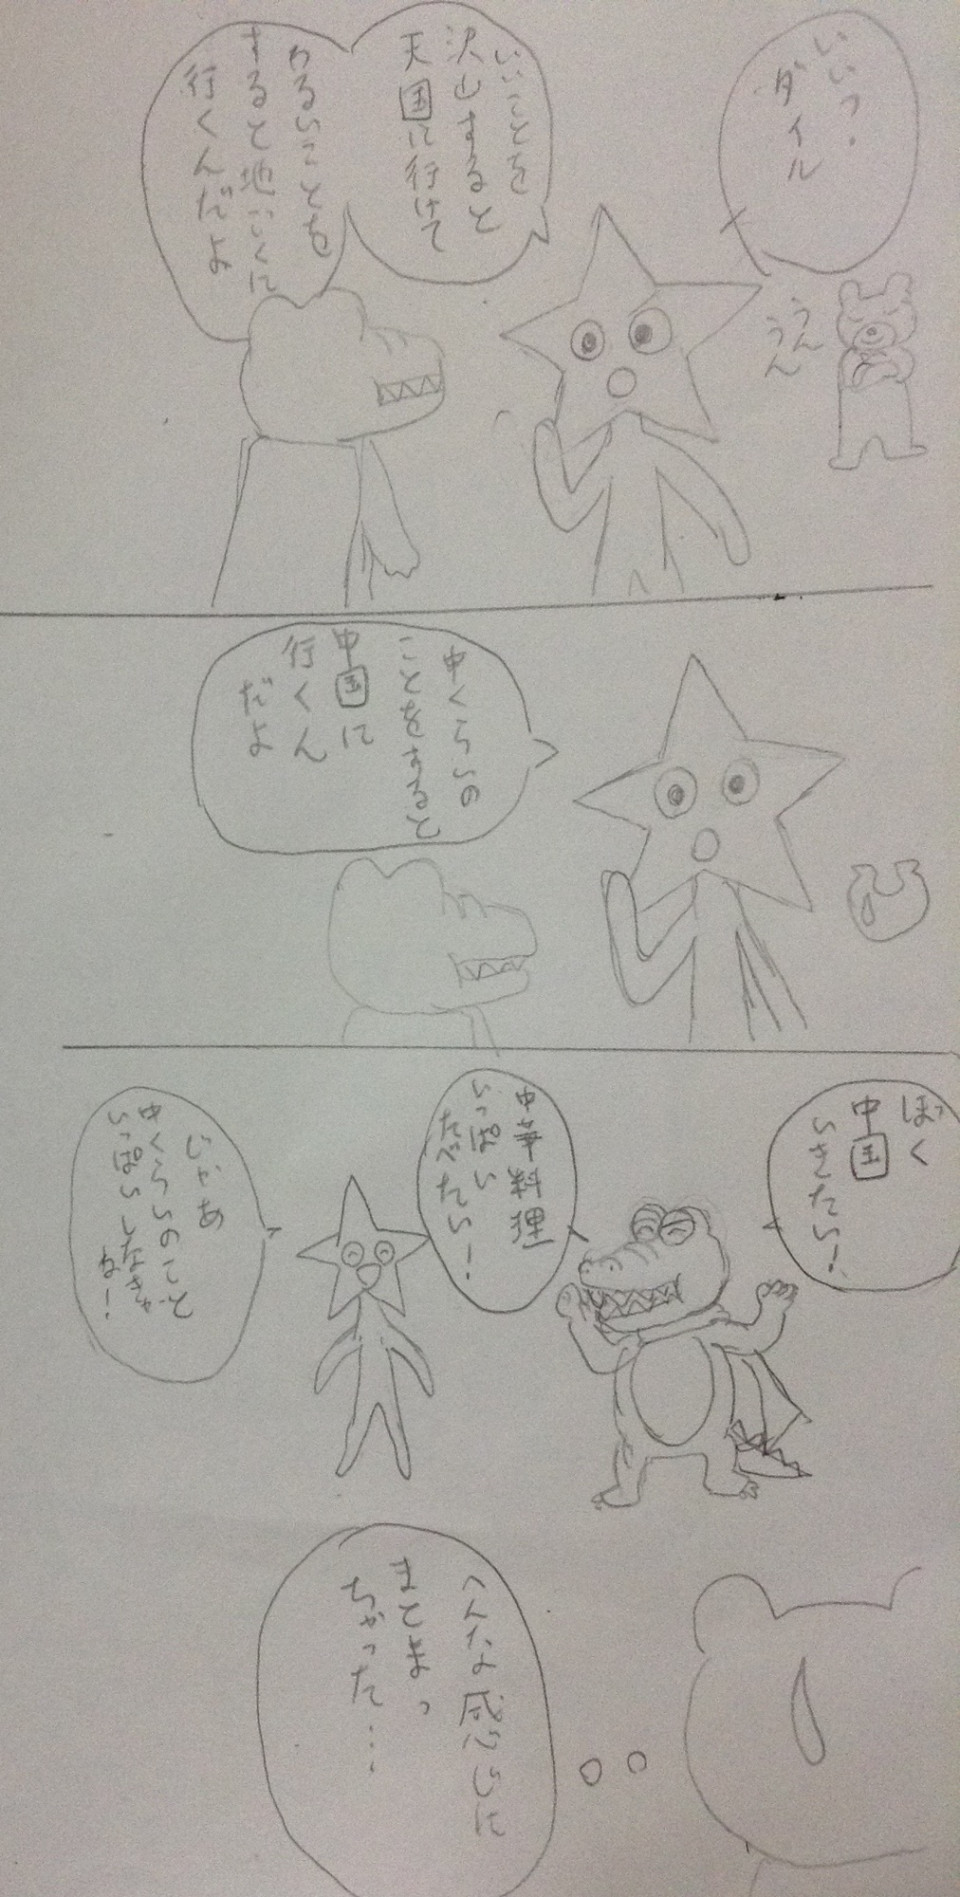 いいっ・
ダイル
うん
うん
いいことを
沢山すると
天国に行けて
わるいことを
すると地ごくに
行くんだよ
中くらいの
ことをすると
中国に
行くん
だよ
ぼく
中国
いきたい!
中華料理
いっぱい
たべたい!
じゃあ
中くらいのこと
いっぱいしなきゃ
ね!
へんな感じに
まとまっ
ちゃった…